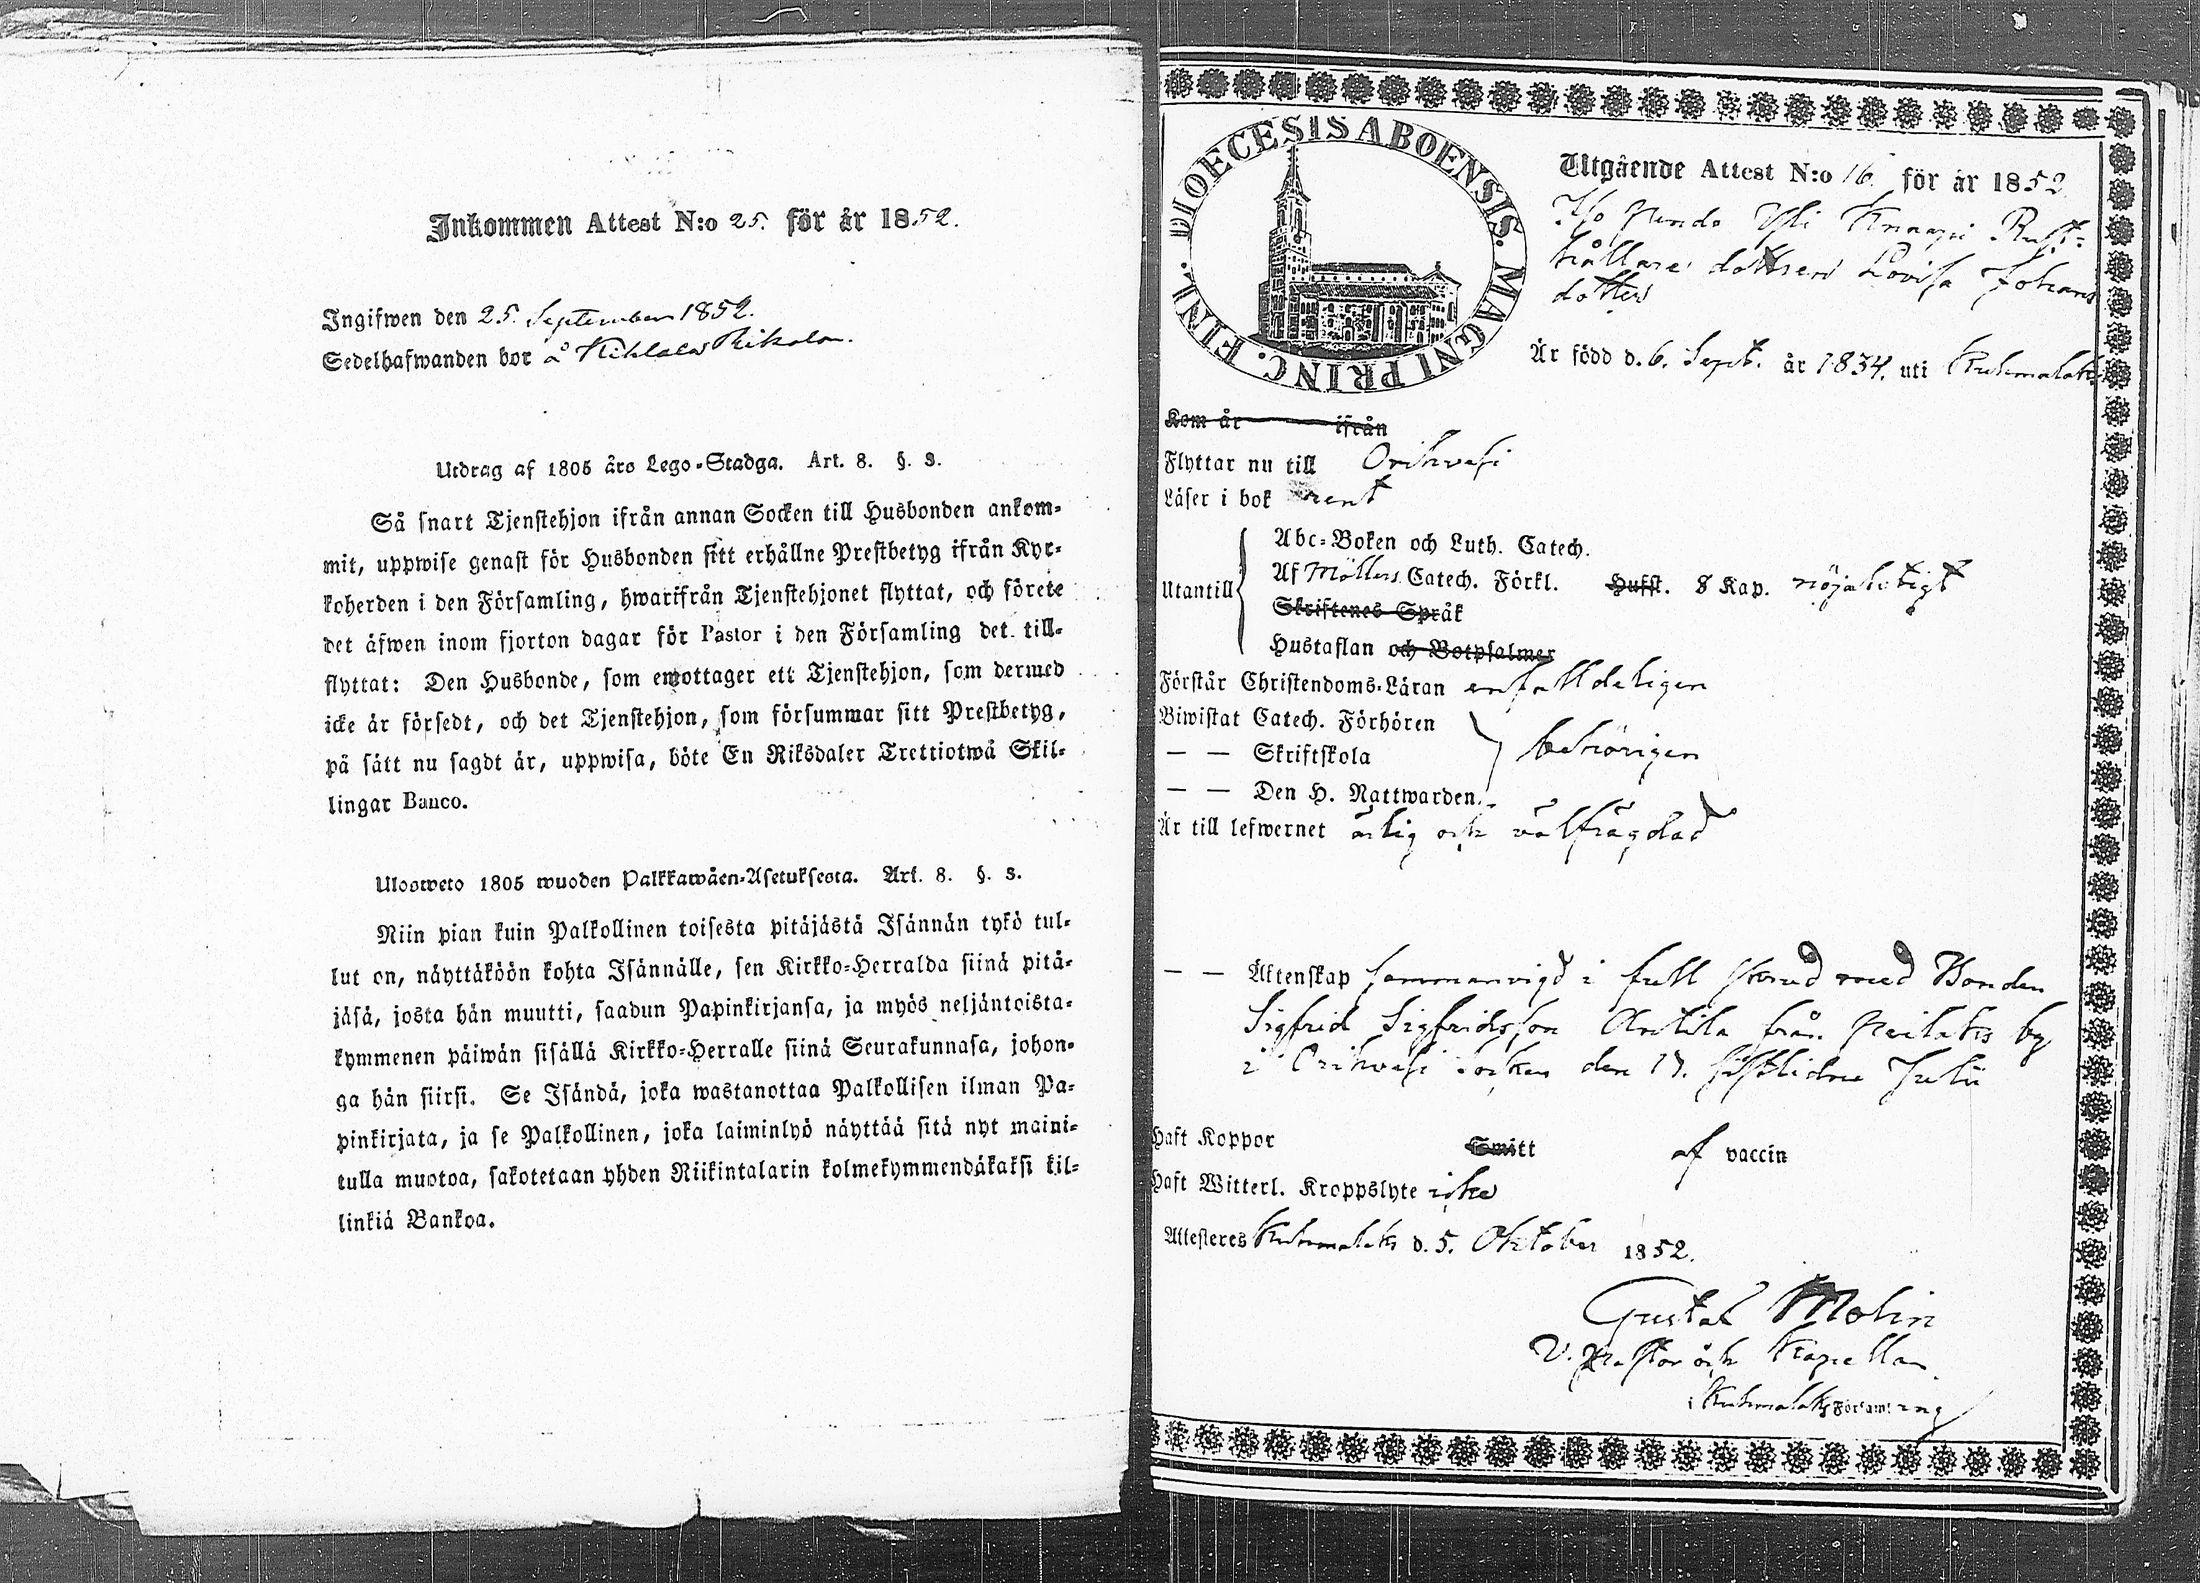 Inkommen Attest N:o 25. för år 1852.
Ingifwen den 25. September 1852.
Sedelhafwanden bor å
Utdrag af 1805 års Lego-Stadga. Art. 8. §. 3.
Så snart Tjenstehjon ifrån annan Socken till Husbonden ankom-
mit, uppwise genast för Husbonden sitt erhållne Prestbetyg ifrån Kyr-
koherden i den Församling, hwarifrån Tjenstehjonet flyttat, och förete
det äfwen inom fjorton dagar för Pastor i den Församling det till-
flyttat: Den Husbonde, som emottager ett Tjenstehjon, som dermed
icke är försedt, och det Tjenstehjon, som försummar sitt Prestbetyg,
på sätt nu sagdt är, uppwisa, böte En Riksdaler Trettiotwå Skil-
lingar Banco.
Ulosweto 1805 wuoden Palkkawäen-Asetuksesta. Art. 8. §. 3.
Niin pian kuin Palkollinen toisesta pitäjästä Isännän tykö tul-
lut on, näyttäköön kohta Isännälle, sen Kirkko-Herralda siinä pitä-
jäsä, josta hän muutti, saadun Papinkirjansa, ja myös neljäntoista-
kymmenen päiwän sisällä Kirkko-Herralle siinä Seurakunnasa, johon-
ga hän siirsi. Se Isändä, joka wastanottaa Palkollisen ilman Pa-
pinkirjata, ja se Palkollinen, joka laiminlyö näyttää sitä nyt maini-
tulla muotoa, sakotetaan yhden Riikintalarin kolmekymmendäkaksi kil-
linkiä Bankoa.
DIOECESIS ABOENSIS. MAGNI PRINC. FINL.
Utgående Attest N:o 16. för år 1852
Knaapi Rust-
hållare dottren Lovisa Johans
dotter
Är född d. 6. Sept. år 1834. uti Kuhmalaks
Kom år ifrån
Flyttar nu till Orihvesi
Läser i bok rent
Utantill
Abc-Boken och Luth. Catech.
Af Möllers Catech. Förkl. Hufst. 8 Kap. nöjaktigt
Skriftenes Språk
Hustaflan och Botpsalmer
Förstår Christendoms-Läran enfalldeligen
Biwistat Catech. Förhören
— — Skriftskola behörigen
— — Den H. Nattwarden
Är till lefwernet ärlig och välfrägdad
— — Äktenskap sammanvigd i full stånd med Bonden
Sigfrid Sigfridsson Antila från by
i Orihvesi socken den 17. sistlidne Julii
Haft Koppor Smitt af vaccin
Haft Witterl. Kroppslyte icke
Attesteres Kuhmalaks d. 5. Oktober 1852.
Gustaf Molin
V. Pastor och Kapellan
i Kuhmalaks Församling